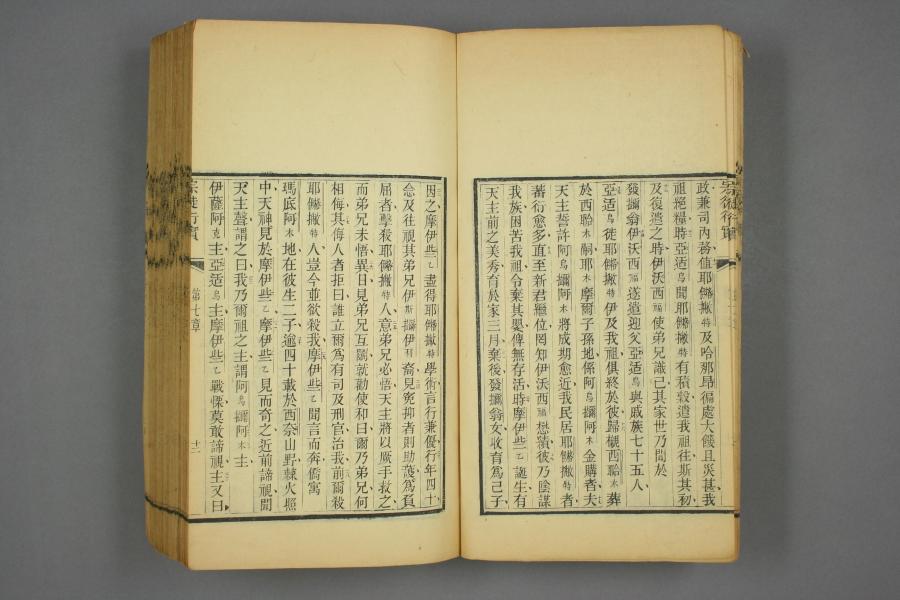 宗徒行實
第七章
十一
政兼司內務值耶䤈撇特及哈那昂徧處大饑且災甚我
祖絕糧時亞适烏聞耶䤈撇特有積穀遣我祖往斯其初
及復遣之時伊沃西福使弟兄識己其家世乃聞於
發攟翁伊沃西福遂遣迎父亞适烏與戚族七十五人
亞适烏徙耶䤈撇特伊及我祖俱終於彼歸櫬西聆木葬
於西聆木嗣耶木摩爾子孫地係阿烏攟阿木金購者夫
天主誓許阿烏攟阿木將成期愈近我民居耶䤈撇特者
蕃衍愈多直至新君繼位罔知伊沃西福懋績彼乃陰謀
我族困苦我祖令棄其嬰俾無存活時摩伊些乙誕生有
天主前之美秀育於家三月棄後發攟翁女收育爲己子
因之摩伊些乙盡得耶䤈撇特學術言行兼優行年四十
念及往視其弟兄伊斯攟伊利裔見寃抑者則助護爲負
屈者擊殺耶䤈撇特人意弟兄必悟天主將以厥手救之
而弟兄未悟異日見弟兄互鬭就勸使和曰爾乃弟兄何
相侮其侮人者拒曰誰立爾爲有司及刑官治我前爾殺
耶䤈撇特人豈今並欲殺我摩伊些乙聞言而奔僑寓
瑪底阿木地在彼生二子逾四十載於西奈山野棘火照
中天神見於摩伊些乙摩伊些乙見而奇之近前諦視聞
天主聲謂之曰我乃爾祖之主謂阿烏攟阿木主
伊薩阿克主亞适烏主摩伊些乙戰慄莫敢諦視主又曰
宗徒行實
第七章
十二